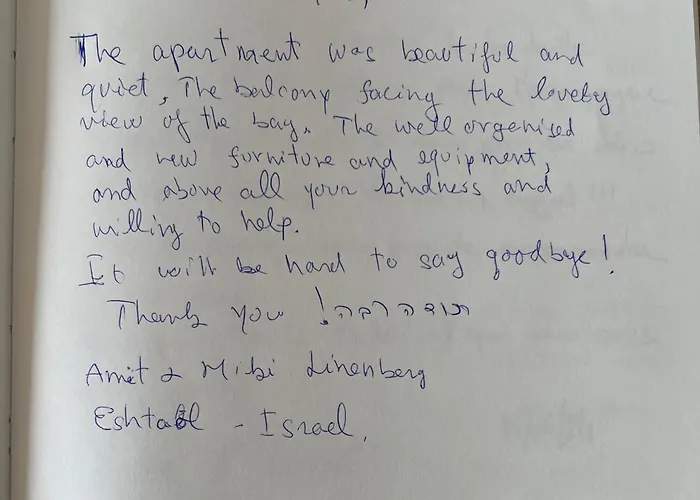 The apartment was beautiful and
quiet, The balcony facing the lovely
view of the bay. The well orgenised
and new furniture and equipment,
and above all your kindness and
willing to help.
It will be hard to say goodbye!
Thank you! תודה רבה
Amit & Mibi Linenberg
Eshtaol - Israel.